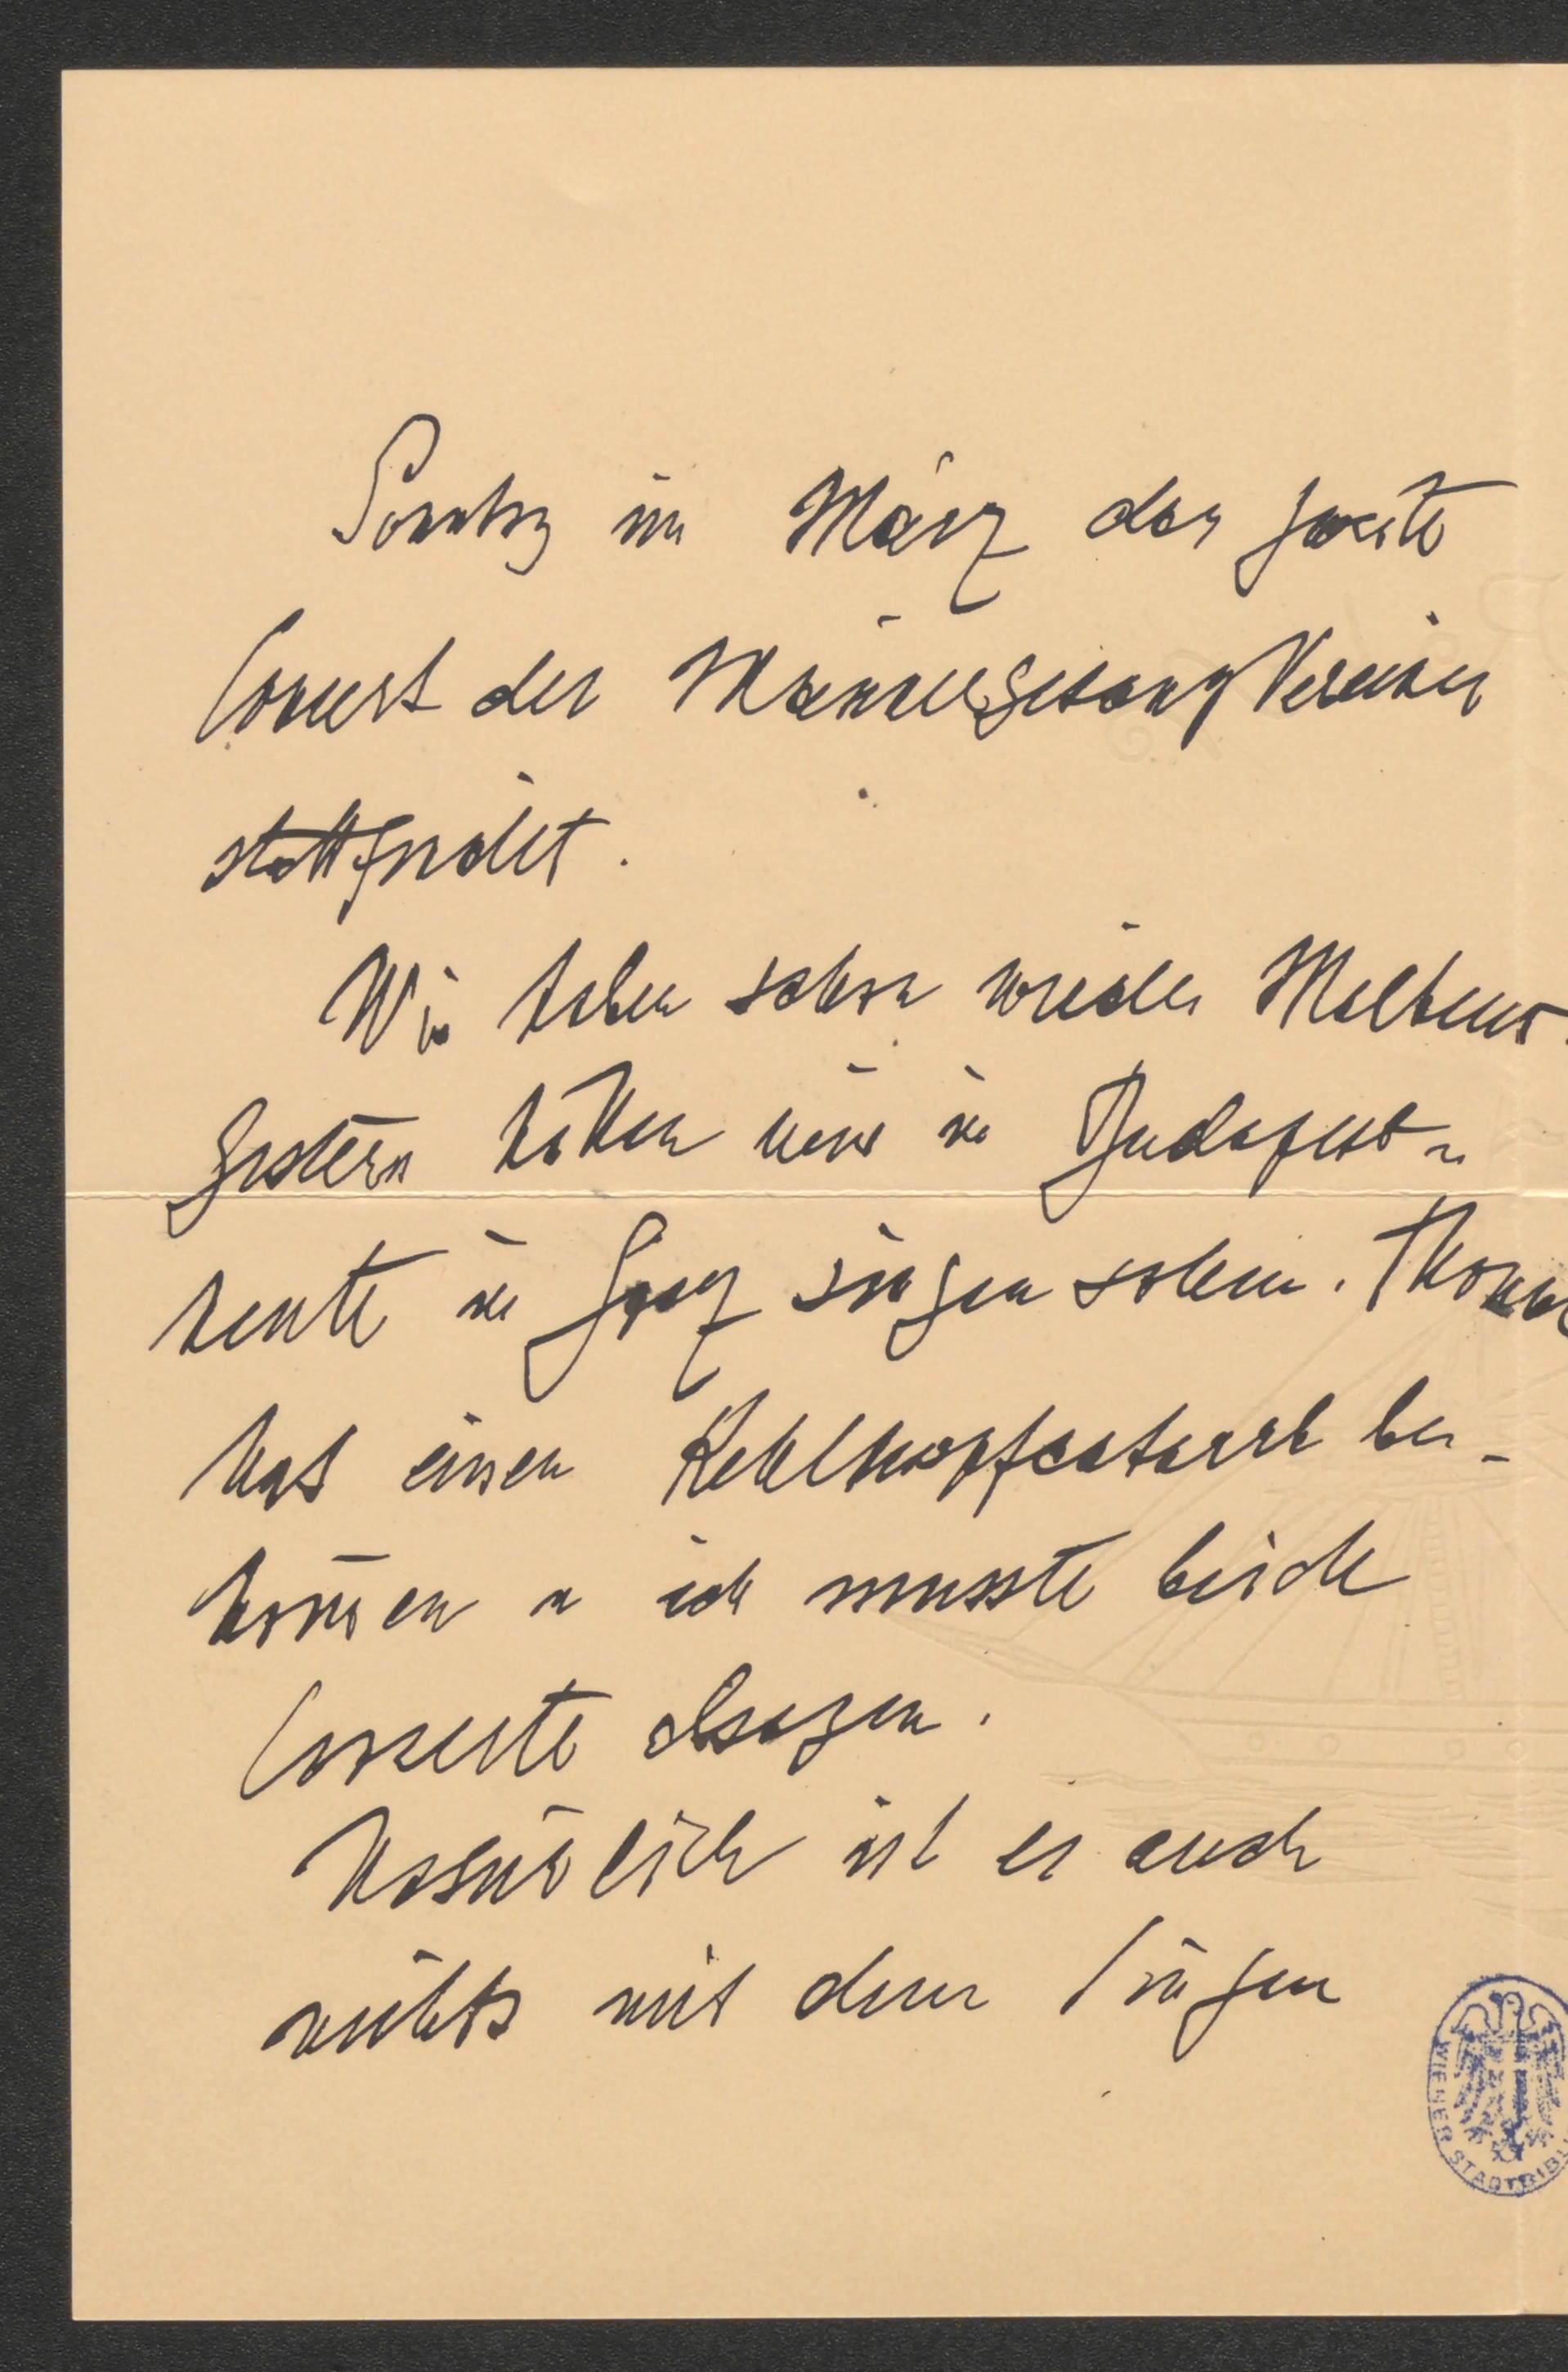 Sonntag im März das zweite
Concert des Männergesang Vereines
stattfindet.
Wir haben schon wieder Malheur.
Gestern hätten wir in Budapest u
heute in Graz singen sollen.
hat einen Kehlkopfcatarrh be-
kommen u ich musste beide
Concerte absagen.
Natürlich ist es auch
nichts mit dem Singen
WIENER STADTBIBL